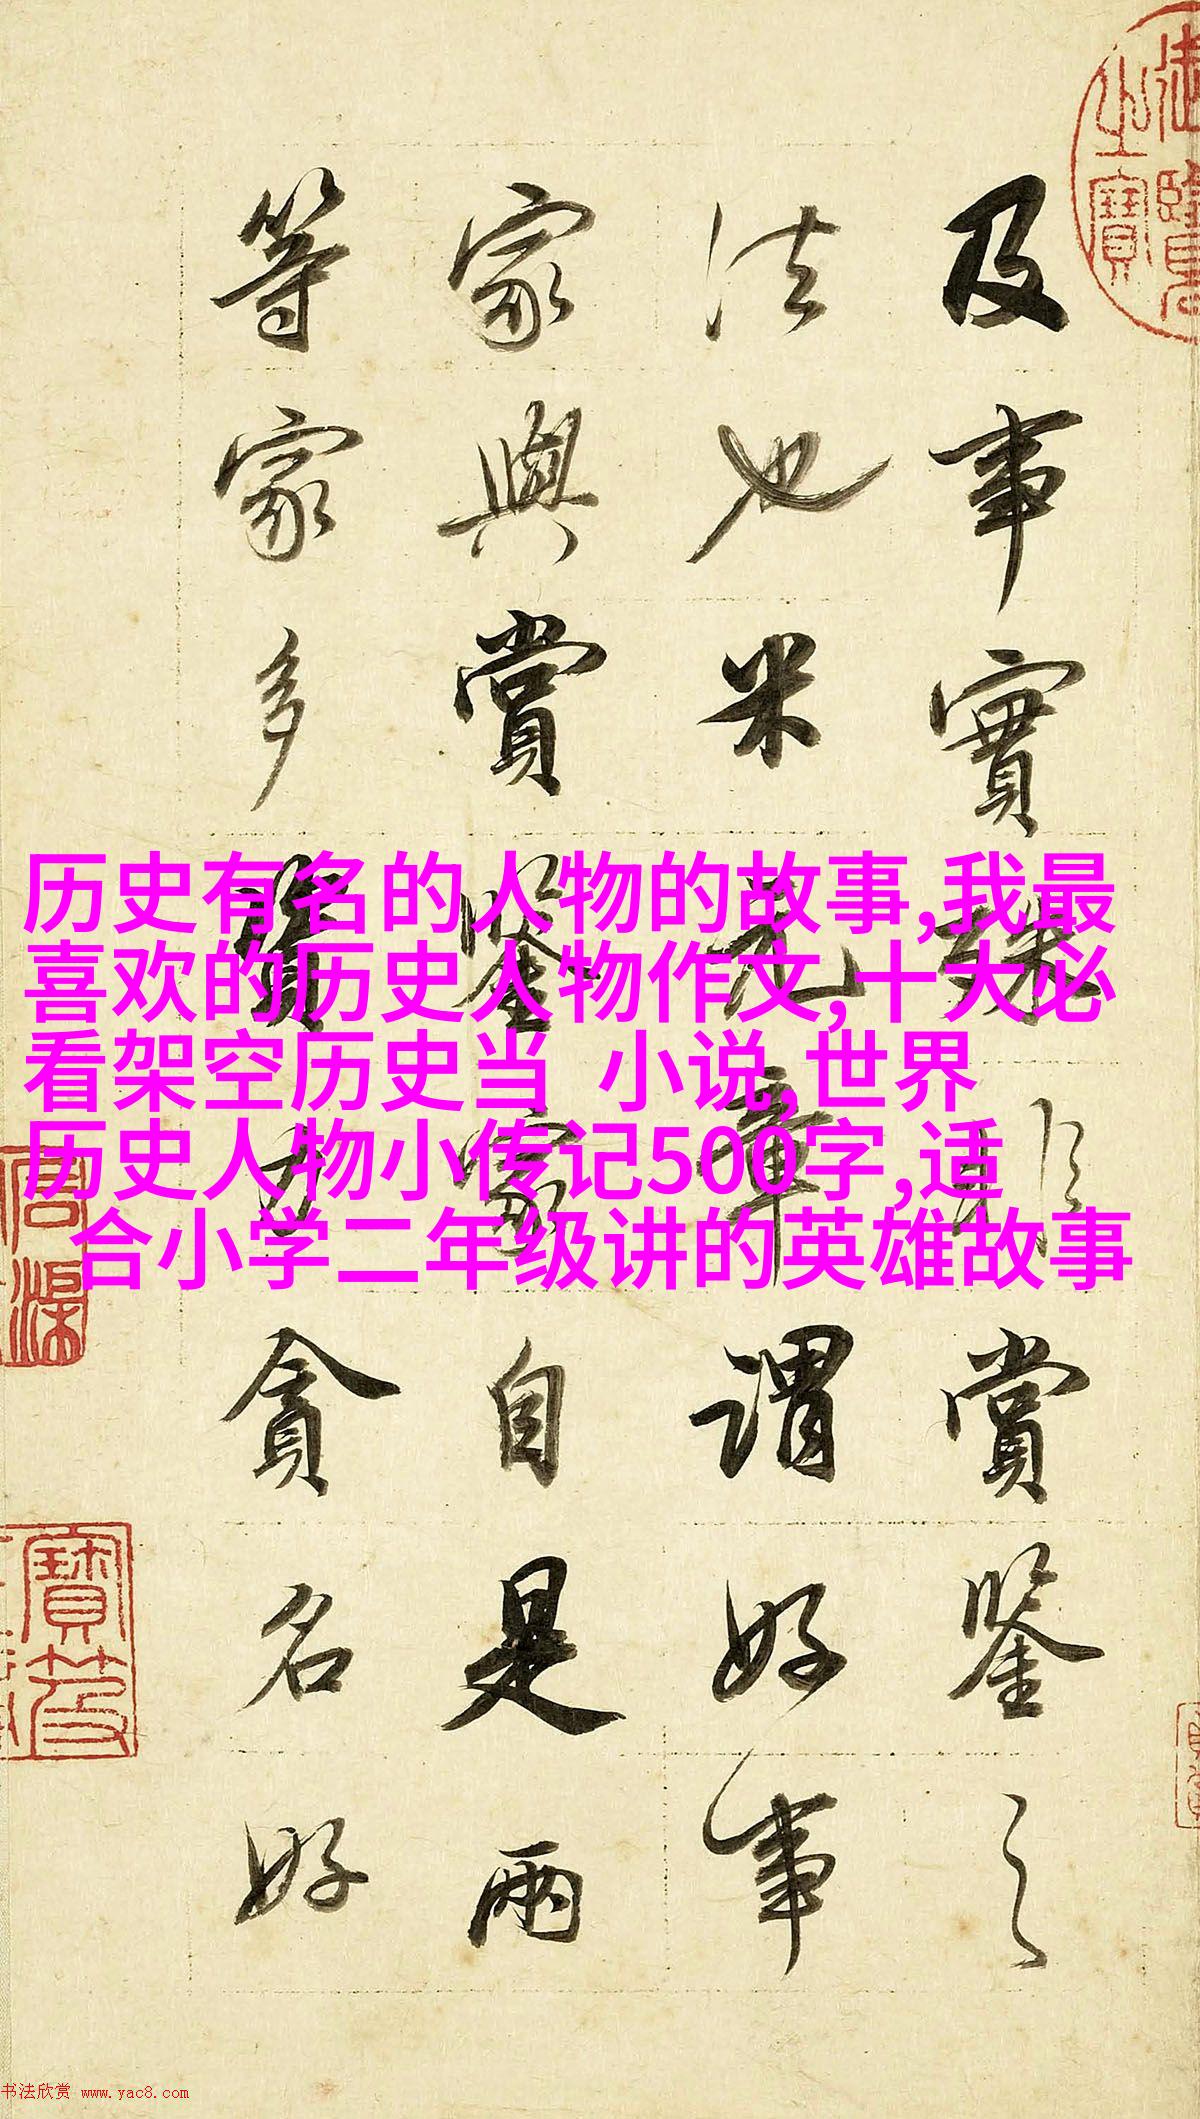 及事實殊非賞鑒之
法也米元章謂好事
家與賞鑒家自是兩
等家多資力貪名好
历史有名的人物的故事,我最
喜欢的历史人物作文,十大必
看架空历史当 小说,世界
历史人物小传记500字,适
合小学二年级讲的英雄故事
书法欣赏 www.yac8.com